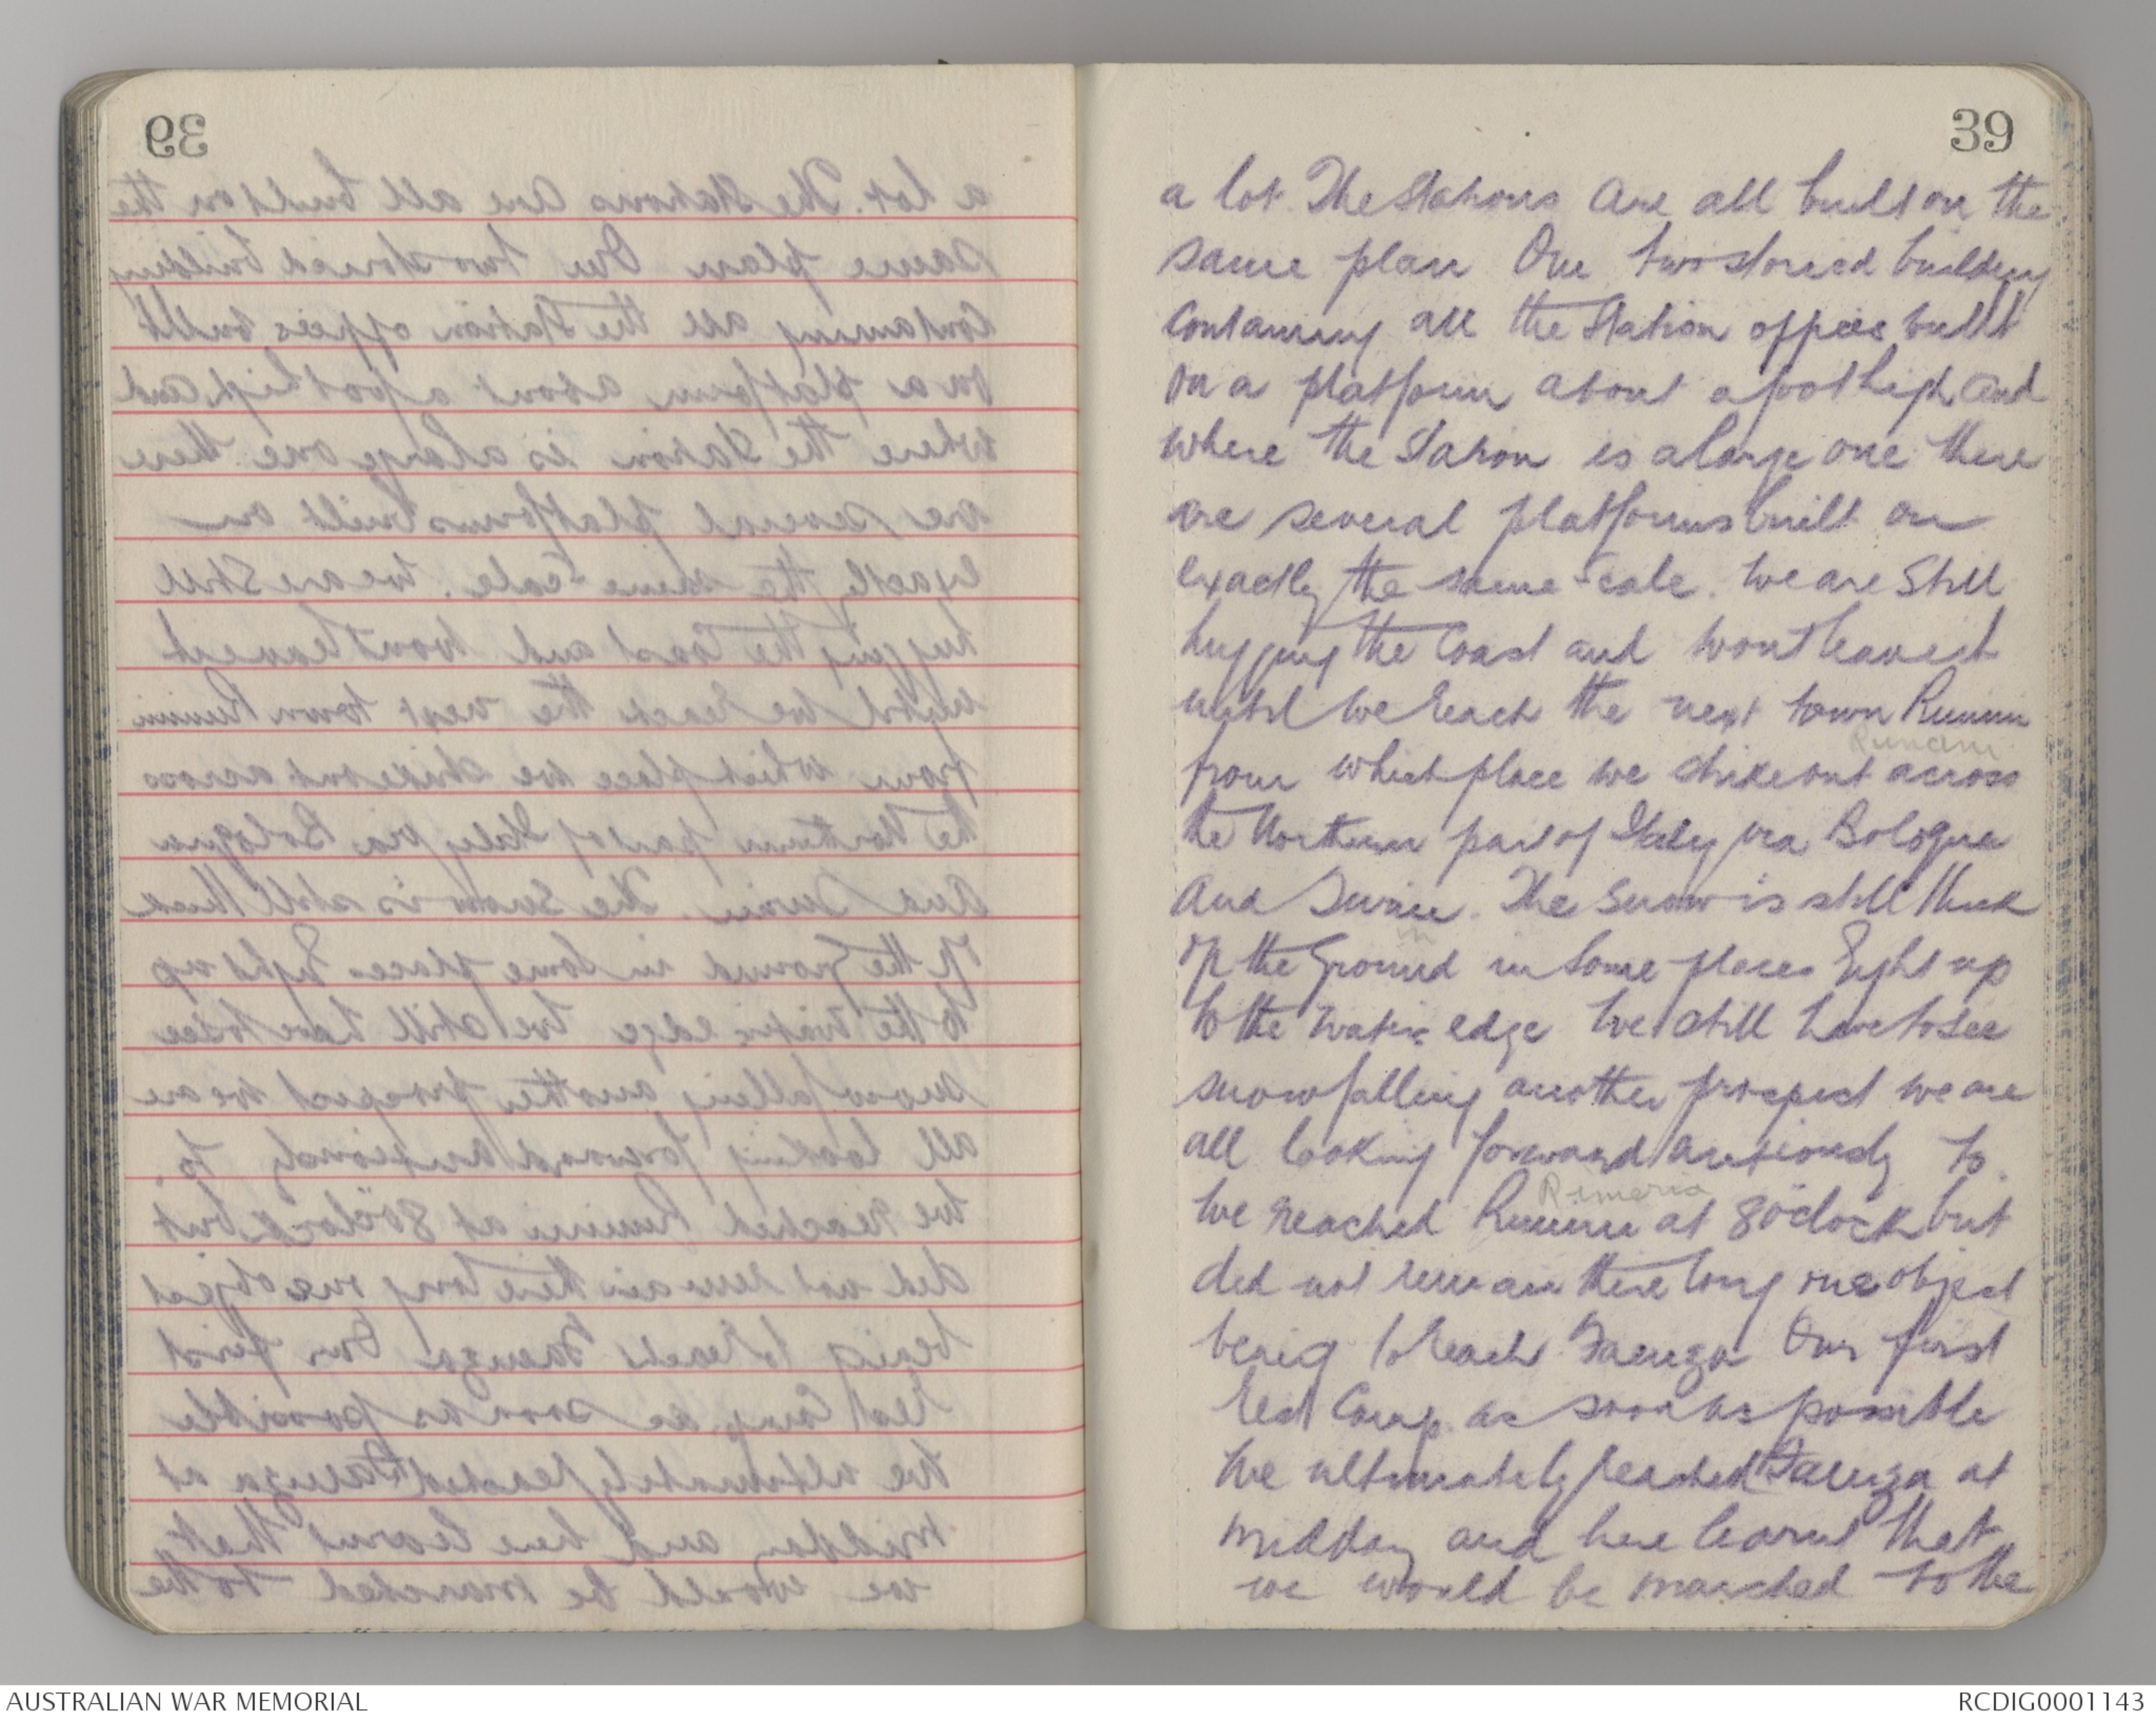 39
a lot. The Stations are all built on the
same plan One two storied building
Containing all the Station offices built
on a platform about a foot high and
where the Station is a large one there
are several platforms built on
exactly the same Scale. We are Still
hugging the Coast and wont leave it
until we reach the next town Rimini
from which place we strike out across
the Northern part of Italy via Bologna
And . The Snow is still thick
on the Ground in Some places Right up
to the waters edge We still have to see
snow falling another prospect we are
all looking forward anxiously to.
We reached Rimini at 8 o'clock but
did not remain there long one object
being to reach Faenza Our first
Rest Camp as soon as possible
We ultimately reached Faenza at
midday and here learnt that
we would be marched to the
AUSTRALIAN WAR MEMORIAL
RCDIG0001143